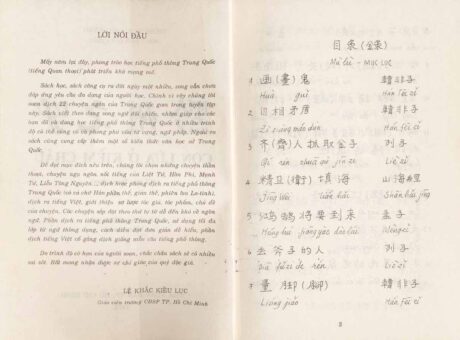 LỜI NÓI ĐẦU
Mấy năm lại đây, phong trào học tiếng phổ thông Trung Quốc
(tiếng Quan thoại) phát triển khá mạnh mẽ.
Sách học, sách công cụ ra đời ngày một nhiều, song vẫn chưa
đáp ứng yêu cầu đa dạng của người học. Chính vì vậy chúng tôi
sưu dịch 22 chuyện ngắn của Trung Quốc gom trong tuyển tập
này. Sách viết theo dạng song ngữ đối chiếu, nhằm giúp cho các
bạn đã và đang học tiếng phổ thông Trung Quốc ở nhiều trình
độ có thể củng cố và phong phú vốn từ vựng, ngữ pháp. Ngoài ra
sách cũng cung cấp thêm một số kiến thức văn học sử Trung
Quốc.
Để đạt mục đích nêu trên, chúng tôi chọn những chuyện thần
thoại, chuyện ngụ ngôn nổi tiếng của Liệt Tử, Hàn Phi, Mạnh
Tử, Liễu Tông Nguyên... dịch hoặc phỏng dịch ra tiếng phổ thông
Trung Quốc
tính, tiếng Việt, giới thiệu sơ lược tác giả, tác phẩm, chủ đề
của chuyện. Các chuyện sắp đặt theo thứ tự từ dễ đến khó về ngôn
ngữ. Phần dịch ra tiếng phổ thông Trung Quốc, chúng tôi đã
lặp lại từ ngữ thông dụng, cách diễn đạt đơn giản dễ hiểu, phần
dịch tiếng Việt cố gắng dịch giống mẫu câu tiếng phổ thông.
Do trình độ có hạn của người soạn, chắc chắn sách sẽ có nhiều
sai sót. Rất mong nhận được sự chỉ giáo của quý độc giả.
LÊ KHẮC KIỀU LỤC
Giáo viên trường CĐSP TP. Hồ Chí Minh
目录(錄)
Mù lù - MỤC LỤC
1 画(畫)鬼 韓非子
Huà guǐ Hán fēi zǐ
2 自相矛盾 韓非子
Zì xiāng máo dùn Hán fēi zǐ
3 齐(齊)人抓取金子 列子
Qí rén zhuā qǔ jīn zi Liè zǐ
4 精卫(衛)填海 山海经
Jīng Wèi tián hǎi Shān hǎi jīng
5 鸿鹄将要到来 孟子
Hóng hú jiāng yào dào lái Mèng zǐ
6 去斧子的人 列子
fǔ zi de rén Liè zǐ
7 量脚(腳) 韓非子
Liáng jiǎo Hán fēi zǐ
3